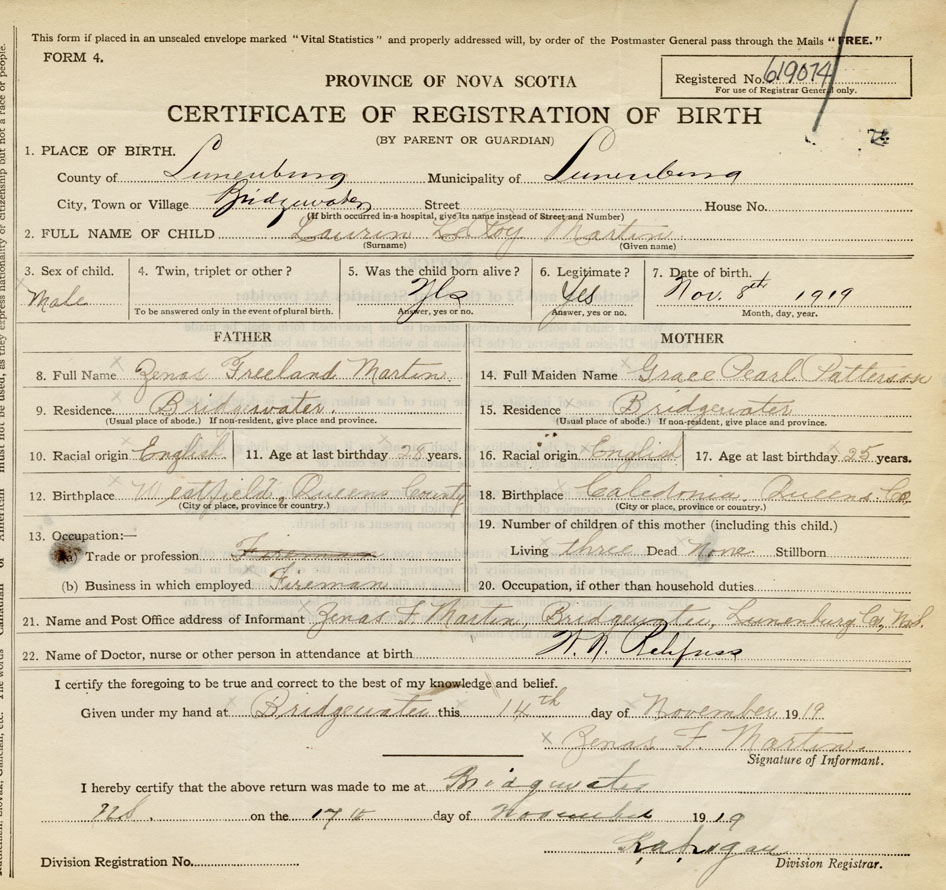 This form if placed in an unsealed envelope marked "Vital Statistics" and properly addressed will, by order of the Postmaster General pass through the Mails "FREE."
FORM 4.
Registered No. 619074
For use of Registrar General only.
PROVINCE OF NOVA SCOTIA
CERTIFICATE OF REGISTRATION OF BIRTH
(BY PARENT OR GUARDIAN)
1. PLACE OF BIRTH.
County of Lunenburg Municipality of Lunenburg
City, Town or Village Bridgewater Street House No.
(If birth occurred in a hospital, give its name instead of Street and Number)
2. FULL NAME OF CHILD Laurin LeRoy Martin
(Surname) (Given name)
3. Sex of child. 4. Twin, triplet or other? 5. Was the child born alive? 6. Legitimate? 7. Date of birth.
Male Yes Yes Nov. 8th 1919
To be answered only in the event of plural birth. Answer, yes or no. Answer, yes or no. Month, day, year.
FATHER MOTHER
8. Full Name Zenas Freeland Martin 14. Full Maiden Name Grace Pearl Patterson
9. Residence. Bridgewater. 15. Residence Bridgewater
(Usual place of abode.) If non-resident, give place and province. (Usual place of abode.) If non-resident, give place and province.
10. Racial origin English 11. Age at last birthday 28 years. 16. Racial origin English 17. Age at last birthday 25 years.
12. Birthplace Westfield, Queens County 18. Birthplace Caledonia, Queens Co.
(City or place, province or country.) (City or place, province or country.)
13. Occupation:— 19. Number of children of this mother (including this child.)
(a) Trade or profession Fireman Living three Dead None Stillborn
(b) Business in which employed Fireman 20. Occupation, if other than household duties
21. Name and Post Office address of Informant Zenas F. Martin, Bridgewater, Lunenburg Co, N.S.
22. Name of Doctor, nurse or other person in attendance at birth. Rehfuss
I certify the foregoing to be true and correct to the best of my knowledge and belief.
Given under my hand at Bridgewater this 14th day of November 1919
Zenas F. Martin.
Signature of Informant.
I hereby certify that the above return was made to me at Bridgewater
N.S. on the 17th day of November 1919
Division Registration No. Division Registrar.